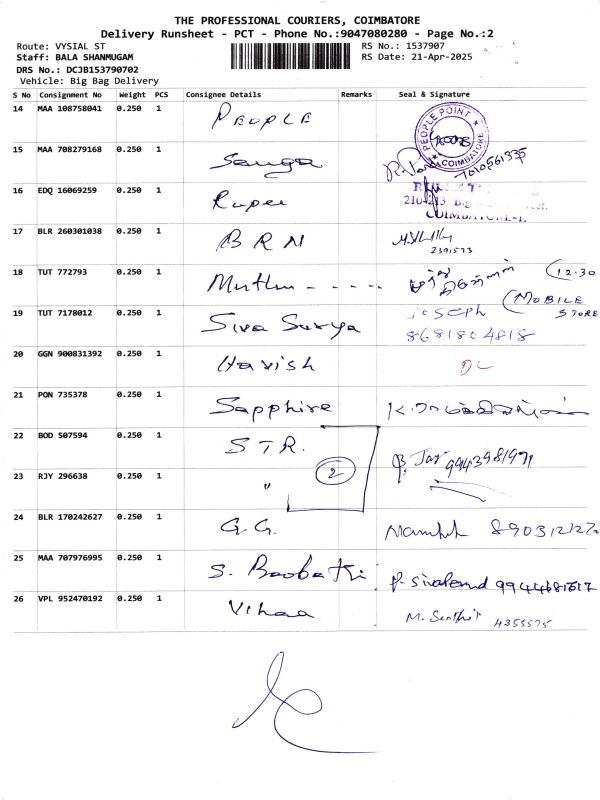 THE PROFESSIONAL COURIERS, COIMBATORE
Delivery Runsheet - PCT - Phone No.:9047080280 - Page No.:2
Route: VYSIAL ST RS No.: 1537907
Staff: BALA SHANMUGAM RS Date: 21-Apr-2025
DRS No.: DCJB153790702
Vehicle: Big Bag Delivery
S No Consignment No Weight PCS Consignee Details Remarks Seal & Signature
14 MAA 108758041 0.250 1 PEOPLE PEOPLE POINT COIMBATORE
15 MAA 708279168 0.250 1 Sanga 7010561335
16 EDQ 16069259 0.250 1 Rupee 210-213 COIMBATORE-1.
17 BLR 260301038 0.250 1 BRN 2391573
18 TUT 772793 0.250 1 Muthu - - - - - 12.30
19 TUT 7178012 0.250 1 Siva Surya Joseph (MOBILE STORE
8681804818
20 GGN 900831392 0.250 1 Havish DL
21 PON 735378 0.250 1 Sapphire
22 BOD 507594 0.250 1 STR. 2 9943981971
23 RJY 296638 0.250 1 "
24 BLR 170242627 0.250 1 G.G.
25 MAA 707976995 0.250 1 S.
26 VPL 952470192 0.250 1 Vihaa M. Senthil 4355575